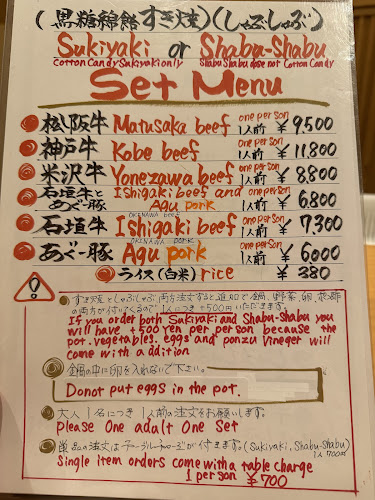 (黒糖綿飴すき焼)(しゃぶしゃぶ)
Sukiyaki or Shabu-Shabu
Cotton Candy Sukiyaki only Shabu Shabu dose not Cotton Candy
Set Menu
松阪牛 Matusaka beef one person 1人前 ¥9,500
神戸牛 Kobe beef one person 1人前 ¥11,800
米沢牛 Yonezawa beef one person 1人前 ¥8,800
石垣牛とあぐー豚 Ishigaki beef and Agu pork one person 1人前 ¥6,800
OKINAWA beef
石垣牛 Ishigaki beef one person 1人前 ¥7,300
OKINAWA pork
あぐー豚 Agu pork one person 1人前 ¥6000
ライス(白米) rice ¥380
すき焼きとしゃぶしゃぶ両方注文すると追加で鍋、野菜、卵、ポン酢
の両方が付いてくるので1人につき+500円いただきます。
If you order both Sukiyaki and Shabu-Shabu you
will have +500 yen per person because the
pot. vegetables. eggs and ponzu Vineger will
come with a addition
鍋の中に卵を入れないで下さい。
Donot put eggs in the pot.
大人1名につき1人前の注文をお願いします。
please One adalt One Set
単品の注文はテーブルチャージが付きます。(Sukiyaki, Shabu-Shabu)
1人700円
Single item orders come with a table charge
1 person ¥700